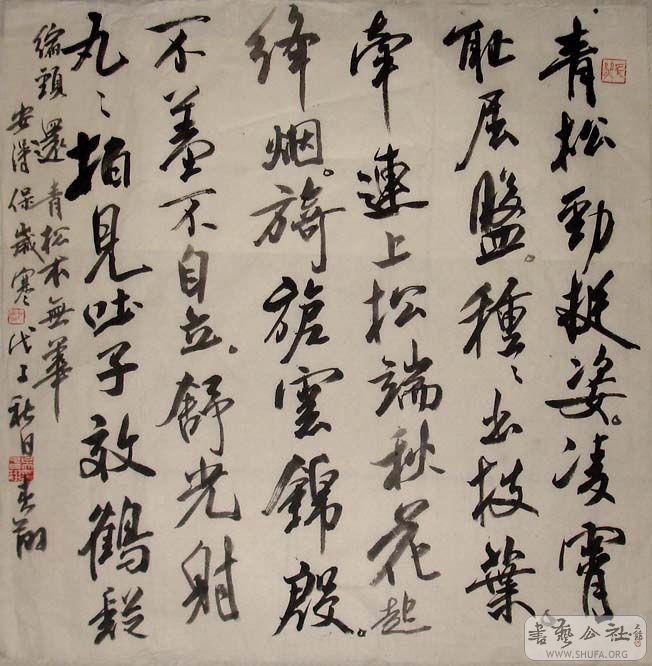 青松勁挺姿。凌霄
耻屈盤。種〻出枝葉
牽連上松端秋花起
絳烟。旖旎雲錦殷。
不羞不自立。舒光射
丸〻柏見吐子效鶴疑
縮頸還青松本無華
安得保歲寒 戊子秋日
書藝公社
WWW.SHUFA.ORG